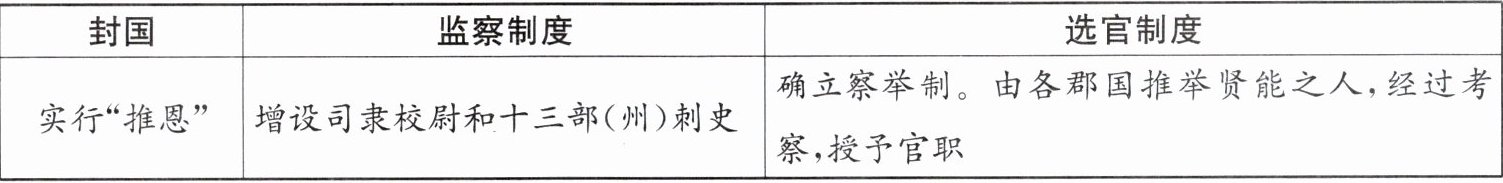 封国 监察制度 选官制度
实行“推恩” 增设司隶校尉和十三部(州)刺史 确立察举制。由各郡国推举贤能之人,经过考
察,授予官职